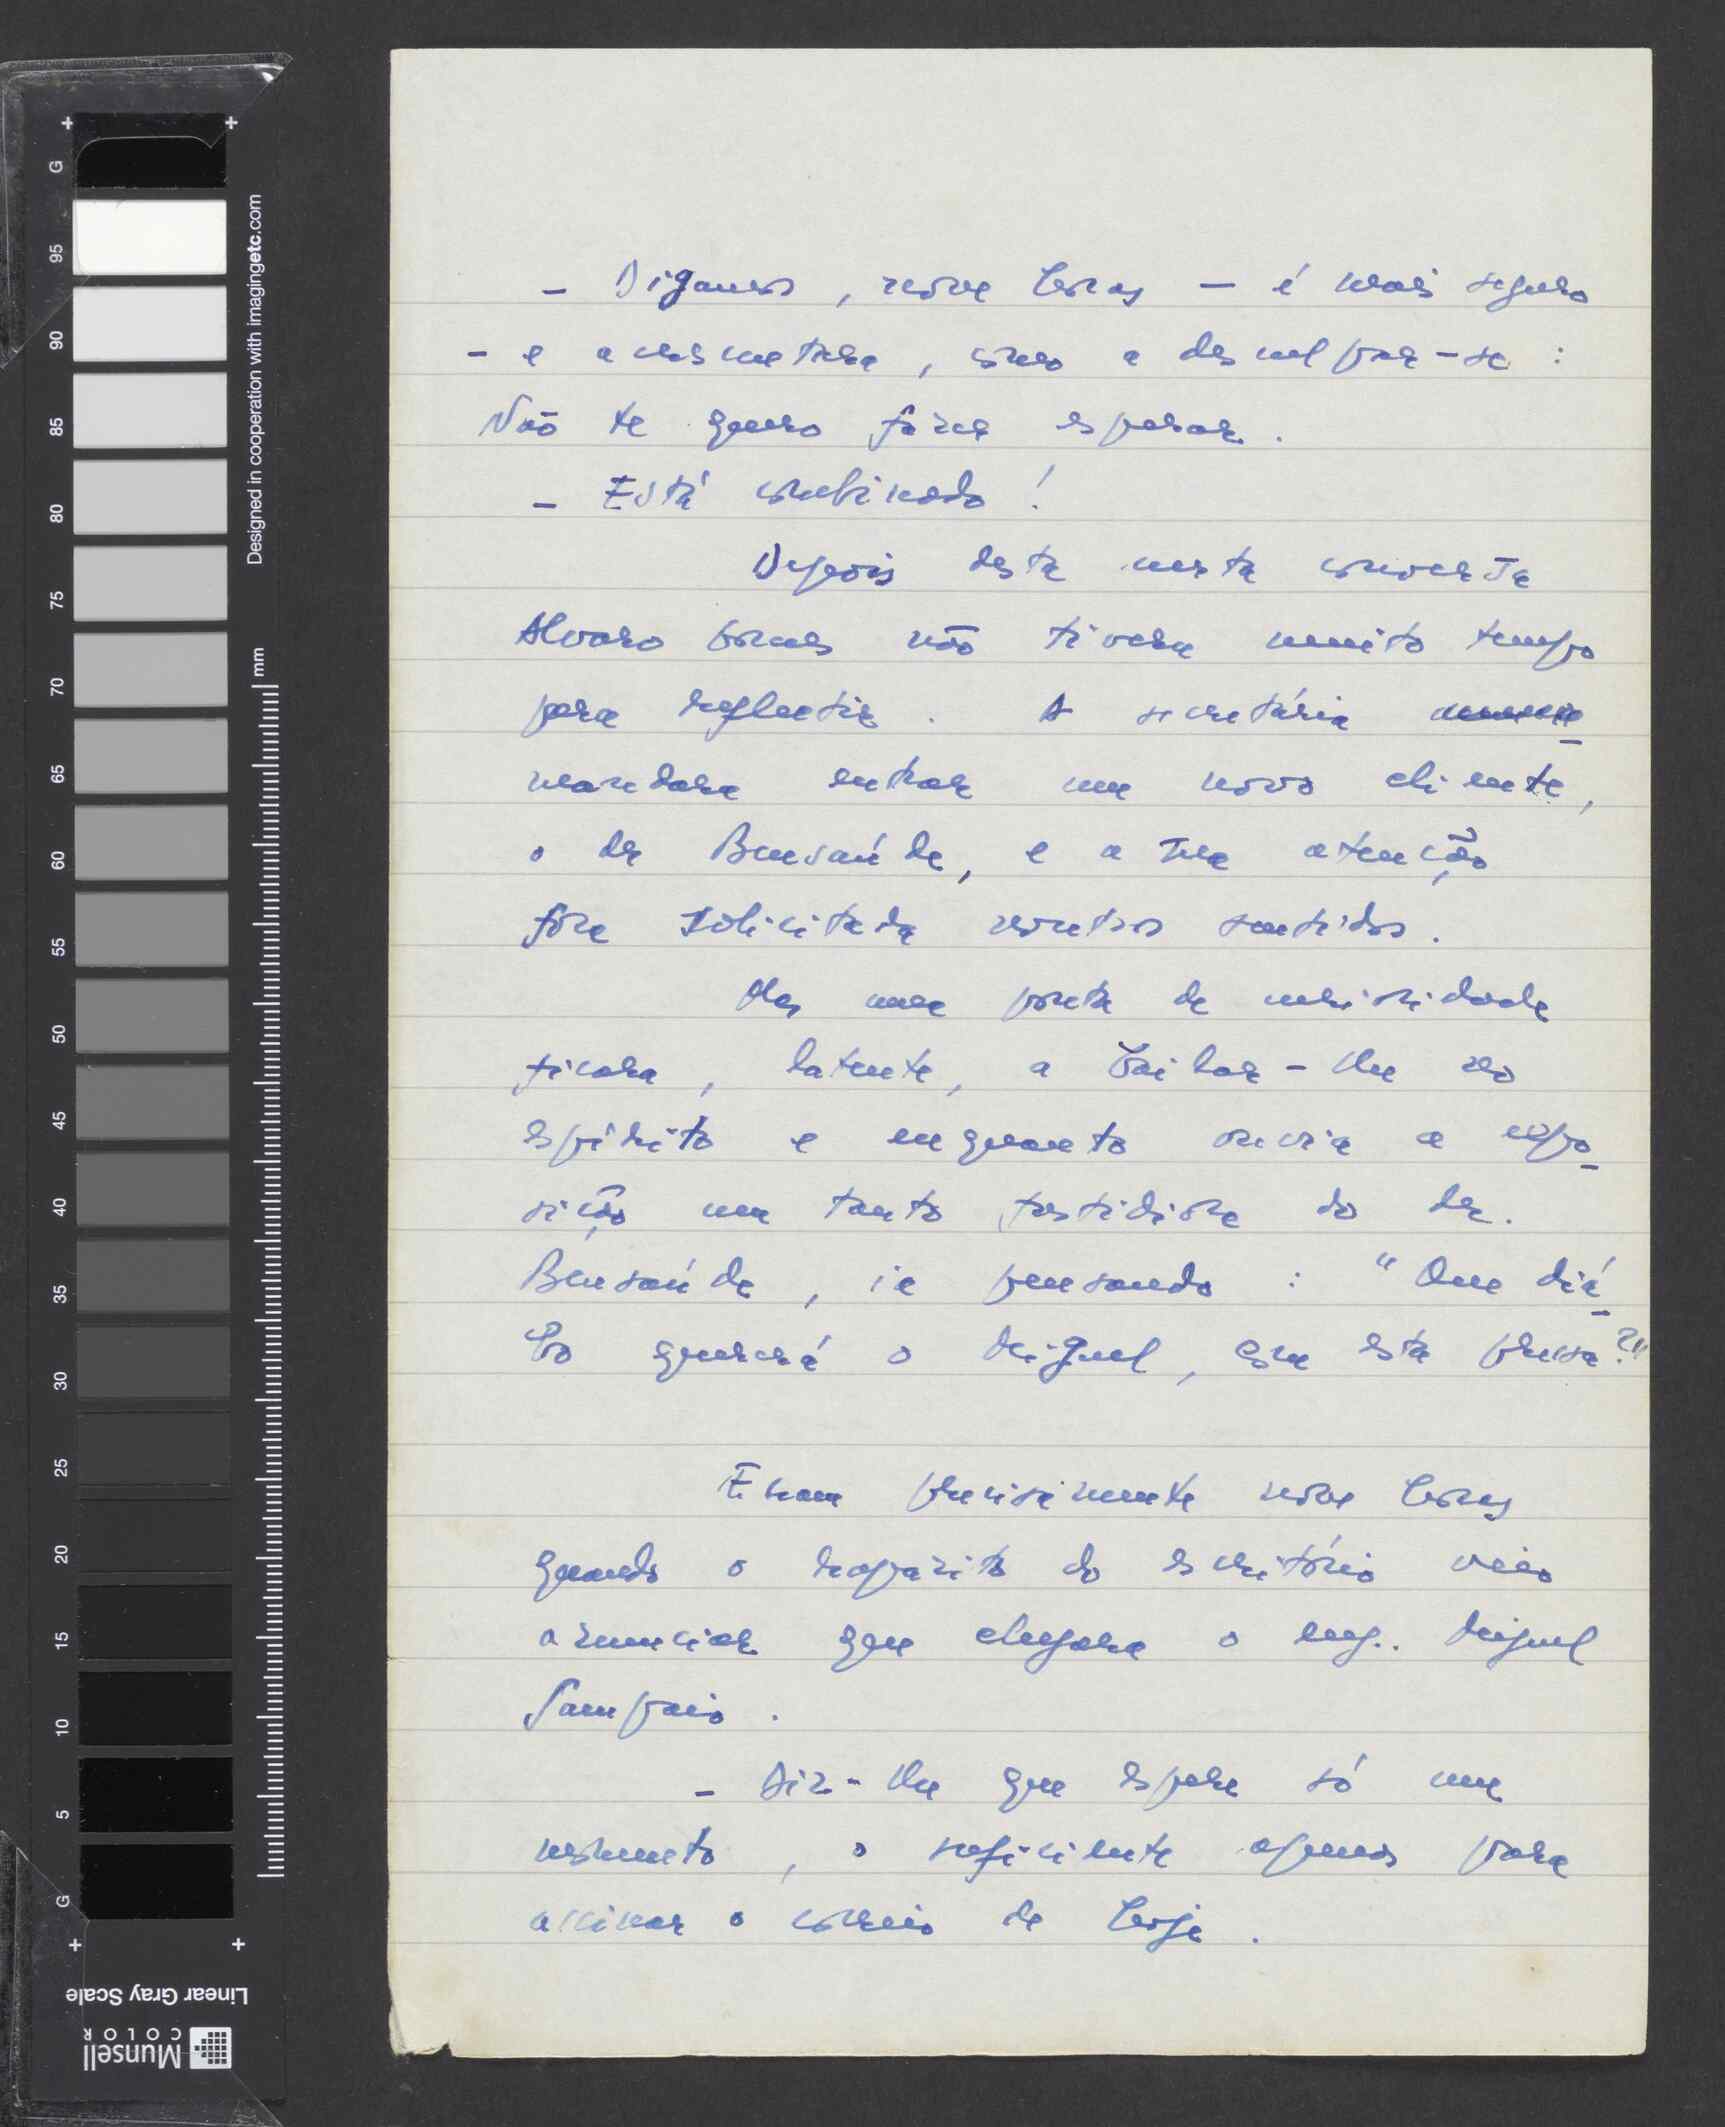 - Digamos, nove horas - é mais seguro
- e acrescentara, como a desculpar-se:
Não te quero fazer esperar.
- Está combinado!
Depois desta curta conversa
Alvaro Gomes não tivera muito tempo
para reflectir. A secretária
mandara entrar um novo cliente,
o dr Bensaúde, e a sua atenção
fora solicitada noutros sentidos.
Mas uma ponta de curiosidade
ficara, latente, a bailar-lhe no
espírito e enquanto ouvia a expo-
sição um tanto fastidiosa do dr.
Bensaúde, ia pensando: "Que diá-
bo quererá o Miguel, com esta pressa?"
Eram precisamente nove horas
quando o rapazito do escritório veio
anunciar que chegara o eng. Miguel
Sampaio.
- Diz-lhe que espere só um
momento, o suficiente apenas para
assinar o correio de hoje.
G
95
90
85
80
75
70
65
60
55
50
45
40
35
30
25
20
15
10
5
G
Designed in cooperation with imagingetc.com
mm
Linear Gray Scale
Munsell
COLOR